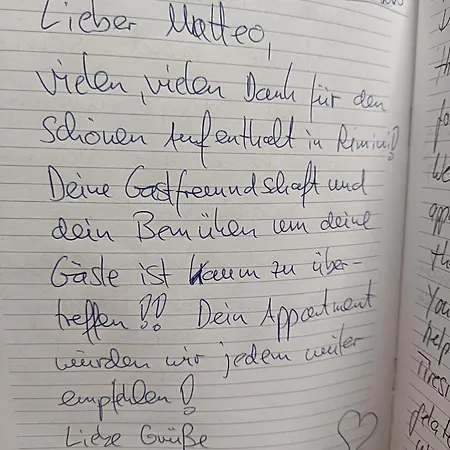 Lieber Matteo,
vielen, vielen Dank für den
schönen Aufenthalt in Rimini!
Deine Gastfreundschaft und
dein Bemühen um deine
Gäste ist kaum zu über-
treffen!! Dein Appartment
würden wir jedem weiter
empfehlen!
Liebe Grüße